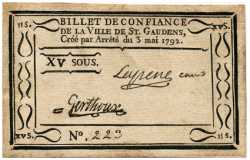 15 S. BILLET DE CONFIANCE XV S.
DE LA VILLE DE ST. GAUDENS,
Créé par Arrêté du 3 mai 1792.
XV SOUS.
Nº. 223
XV S. 15 S.